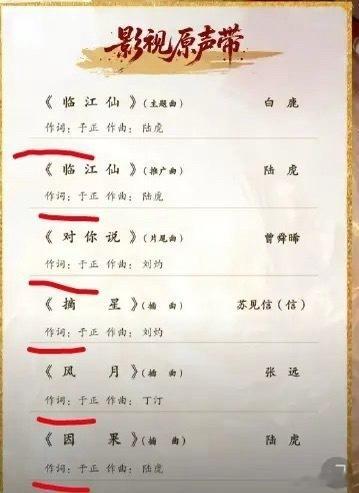 影视原声带
《临江仙》(主题曲) 白鹿
作词：于正 作曲：陆虎
《临江仙》(推广曲) 陆虎
作词：于正 作曲：陆虎
《对你说》(片尾曲) 曾舜晞
作词：于正 作曲：刘灼
《摘星》(插曲) 苏见信(信)
作词：于正 作曲：刘灼
《风月》(插曲) 张远
作词：于正 作曲：丁汀
《因果》(插曲) 陆虎
作词：于正 作曲：陆虎